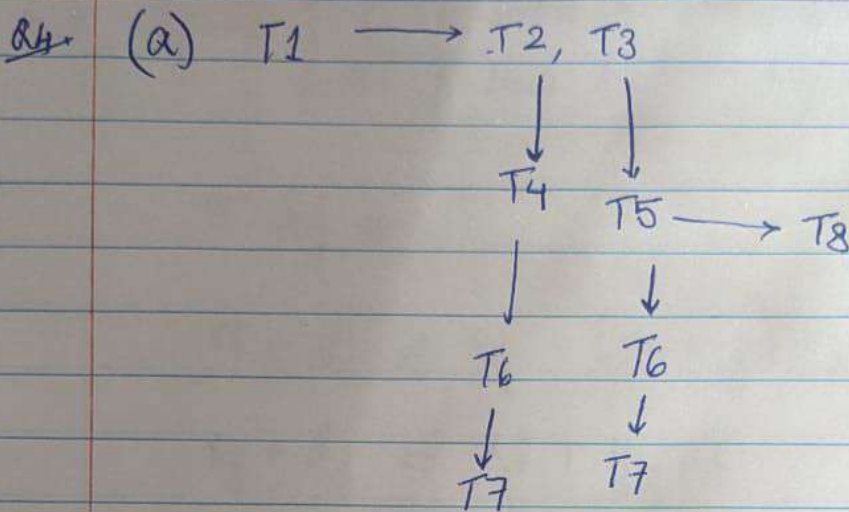 Q4. (a) T1 → T2, T3
T4
T5 → T8
T6 T6
T7 T7